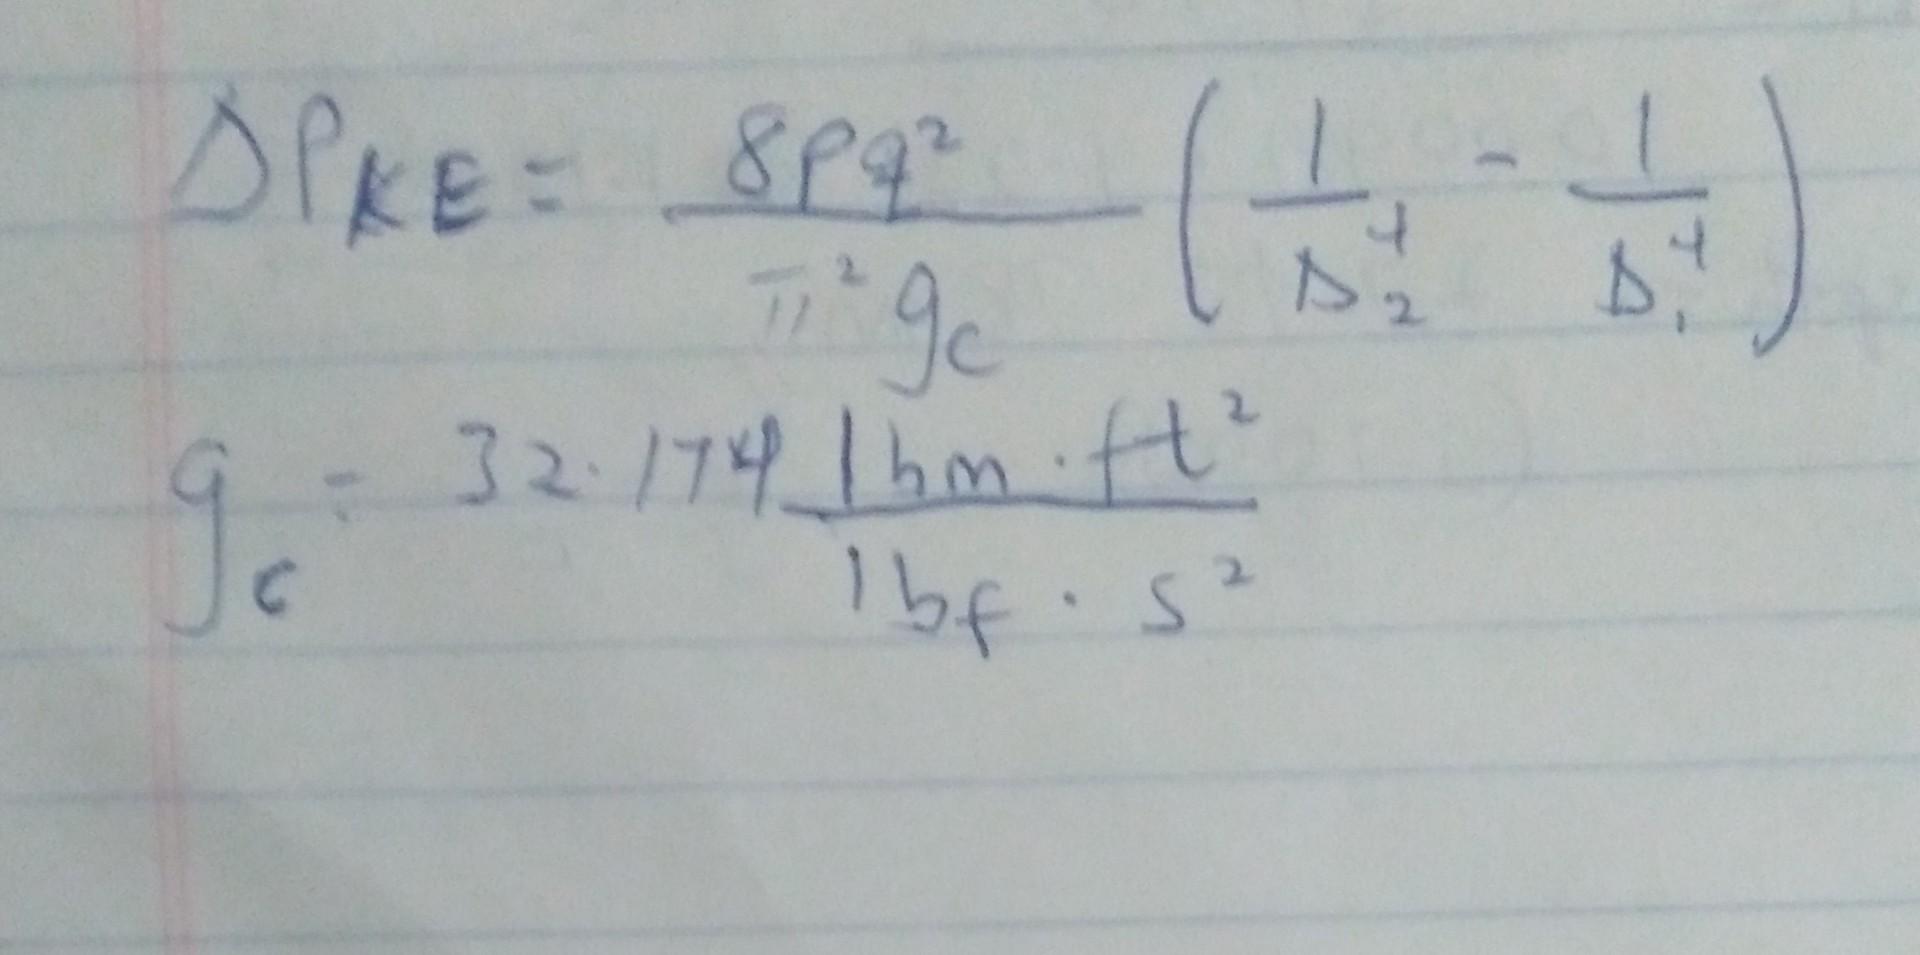 ΔP_KE = \frac{8ρq²}{π² g_c} ( \frac{1}{D_2^4} - \frac{1}{D_1^4} )
g_c = 32.174 \frac{lbm · ft²}{lbf · s²}